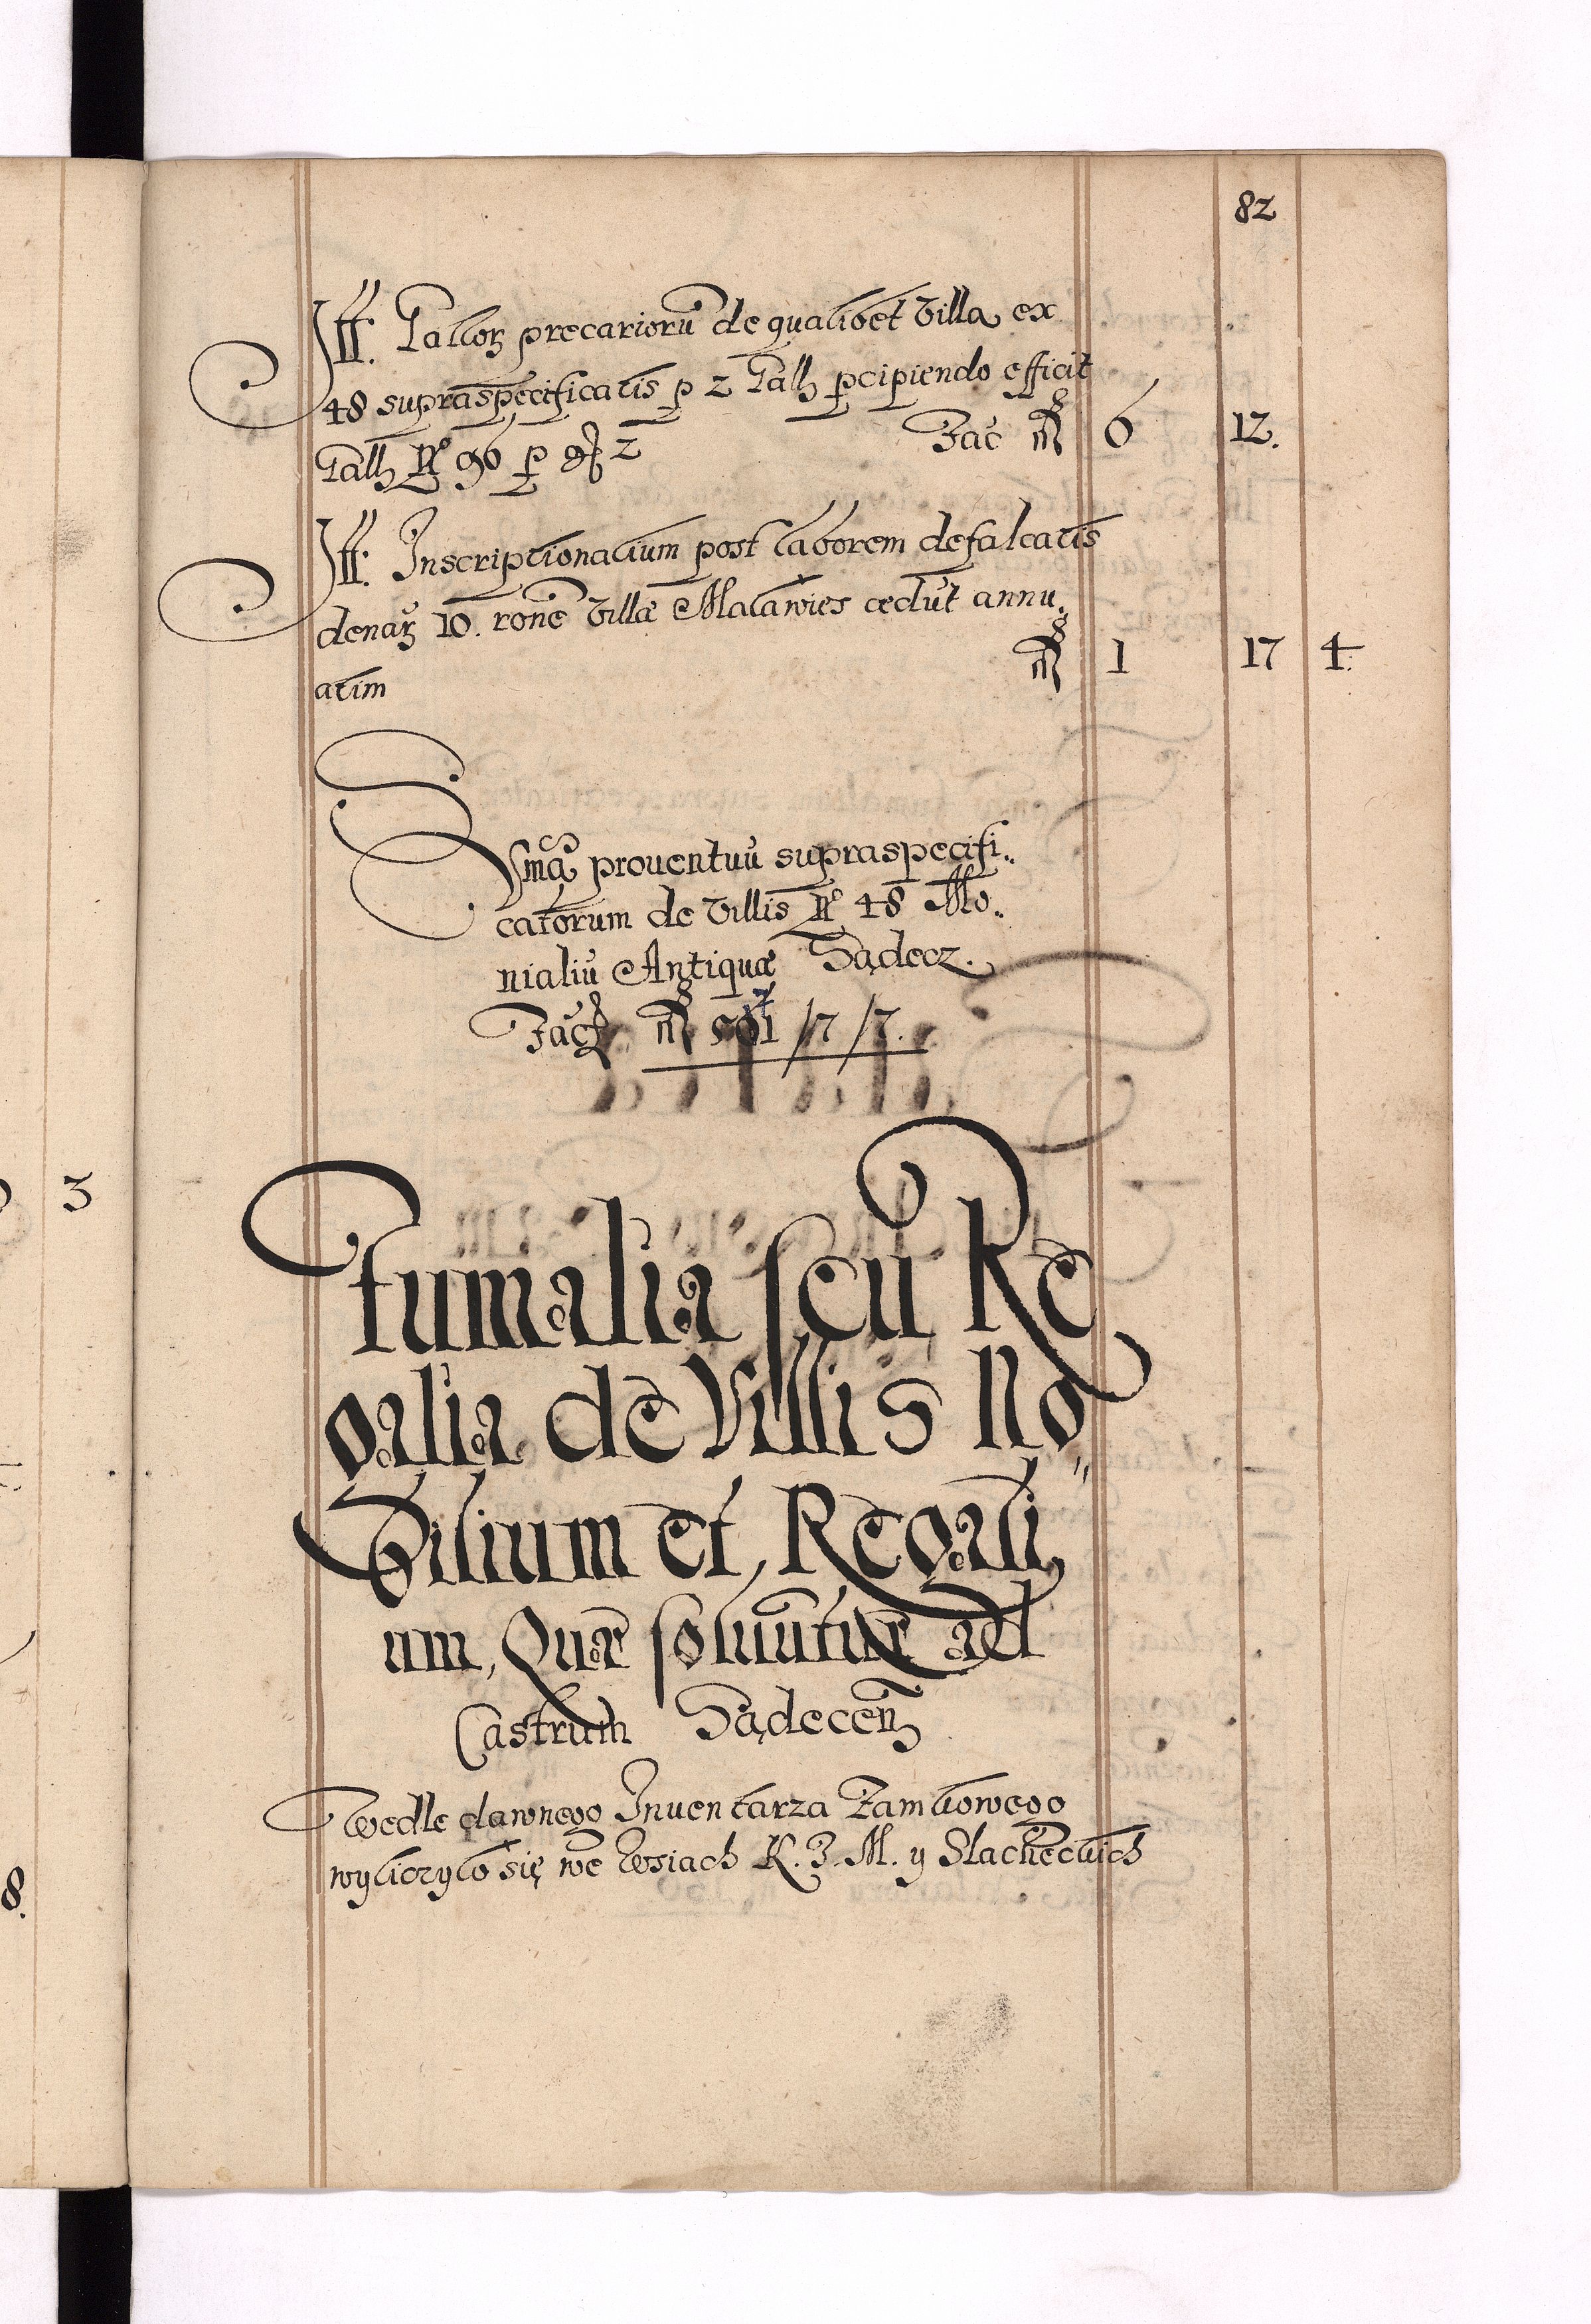 82
Itt. Gallor precarioru de qualibet villa ex
48 supraspecificatis p 2 Gall pcipiendo efficit
Gall No 96 p gr 2 Fac m 6 12.
Itt. Inscriptionalium post laborem defalcatis
denar 10. rone villæ Malawies cedut annu..
atim m 1 17 4.
Sma prouentuu supraspecifi..
catorum de villis No 48 Mo..
nialiu Antiquæ Sądecz.
Fac m 501/7/7.
3
Fumalia seu Re
galia de Villis No"
bilium et, Regali
um, Quæ soluutur ad
Castrum Sądecen
Wedle dawnego Inuentarza Zamkowego
wyliczyło się we wsiach K. J. M. y Slacheckich
8.